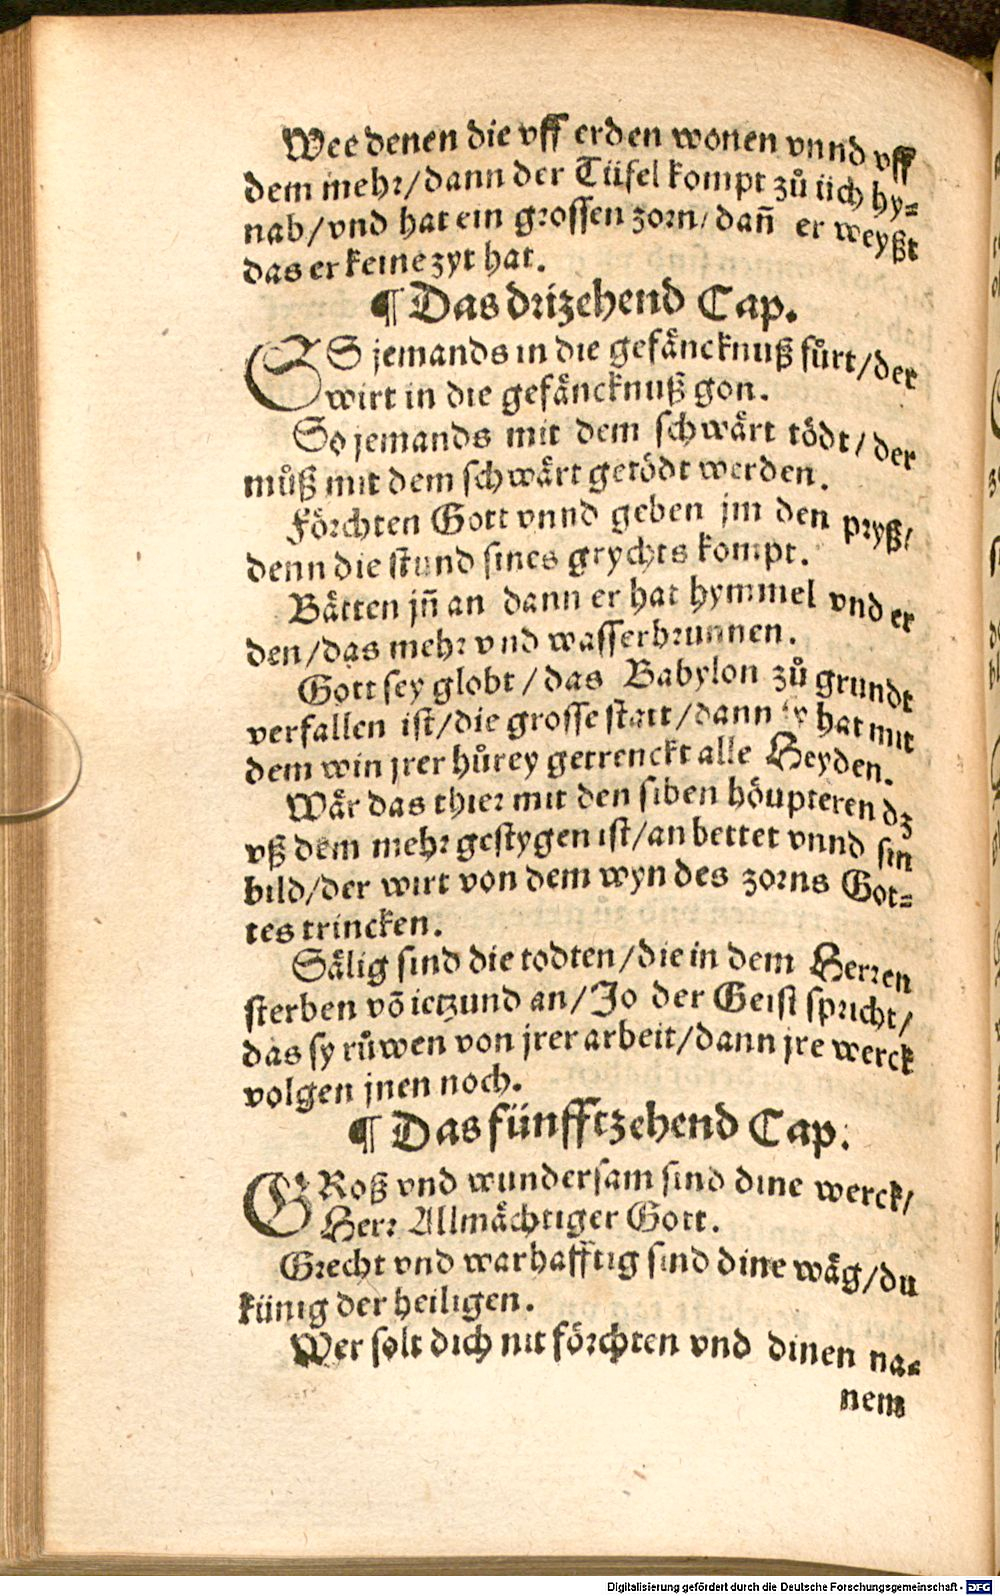 Wee denen die vff erden wonen vnnd vff
dem mehr/dann der Tüfel kompt zů üch hy⸗
nab/vnd hat ein grossen zorn/dañ er weyßt
das er keine zyt hat.
¶ Das drizehend Cap.
SO jemands in die gefäncknuß fůrt/der
wirt in die gefäncknuß gon.
So jemands mit dem schwärt tödt/der
můß mit dem schwärt getödt werden.
Förchten Gott vnnd geben jm den pryß/
denn die stund sines grychts kompt.
Bätten jñ an dann er hat hymmel vnd er
den/das mehr vnd wasserbrunnen.
Gott sey globt/das Babylon zů grundt
verfallen ist/die grosse statt/dann sy hat mit
dem win jrer hůrey getrenckt alle Heyden.
Wär das thier mit den siben höupteren dz
vß dem mehr gestygen ist/an bettet vnnd sin
bild/der wirt von dem wyn des zorns Got⸗
tes trincken.
Sälig sind die todten/die in dem Herren
sterben võ ietzund an/Jo der Geist spricht/
das sy růwen von jrer arbeit/dann jre werck
volgen jnen noch.
¶ Das fünfftzehend Cap.
GRoß vnd wundersam sind dine werck/
Herr Allmächtiger Gott.
Grecht vnd warhafftig sind dine wäg/du
künig der heiligen.
Wer solt dich nit förchten vnd dinen na⸗
nem
Digitalisierung gefördert durch die Deutsche Forschungsgemeinschaft - DFG